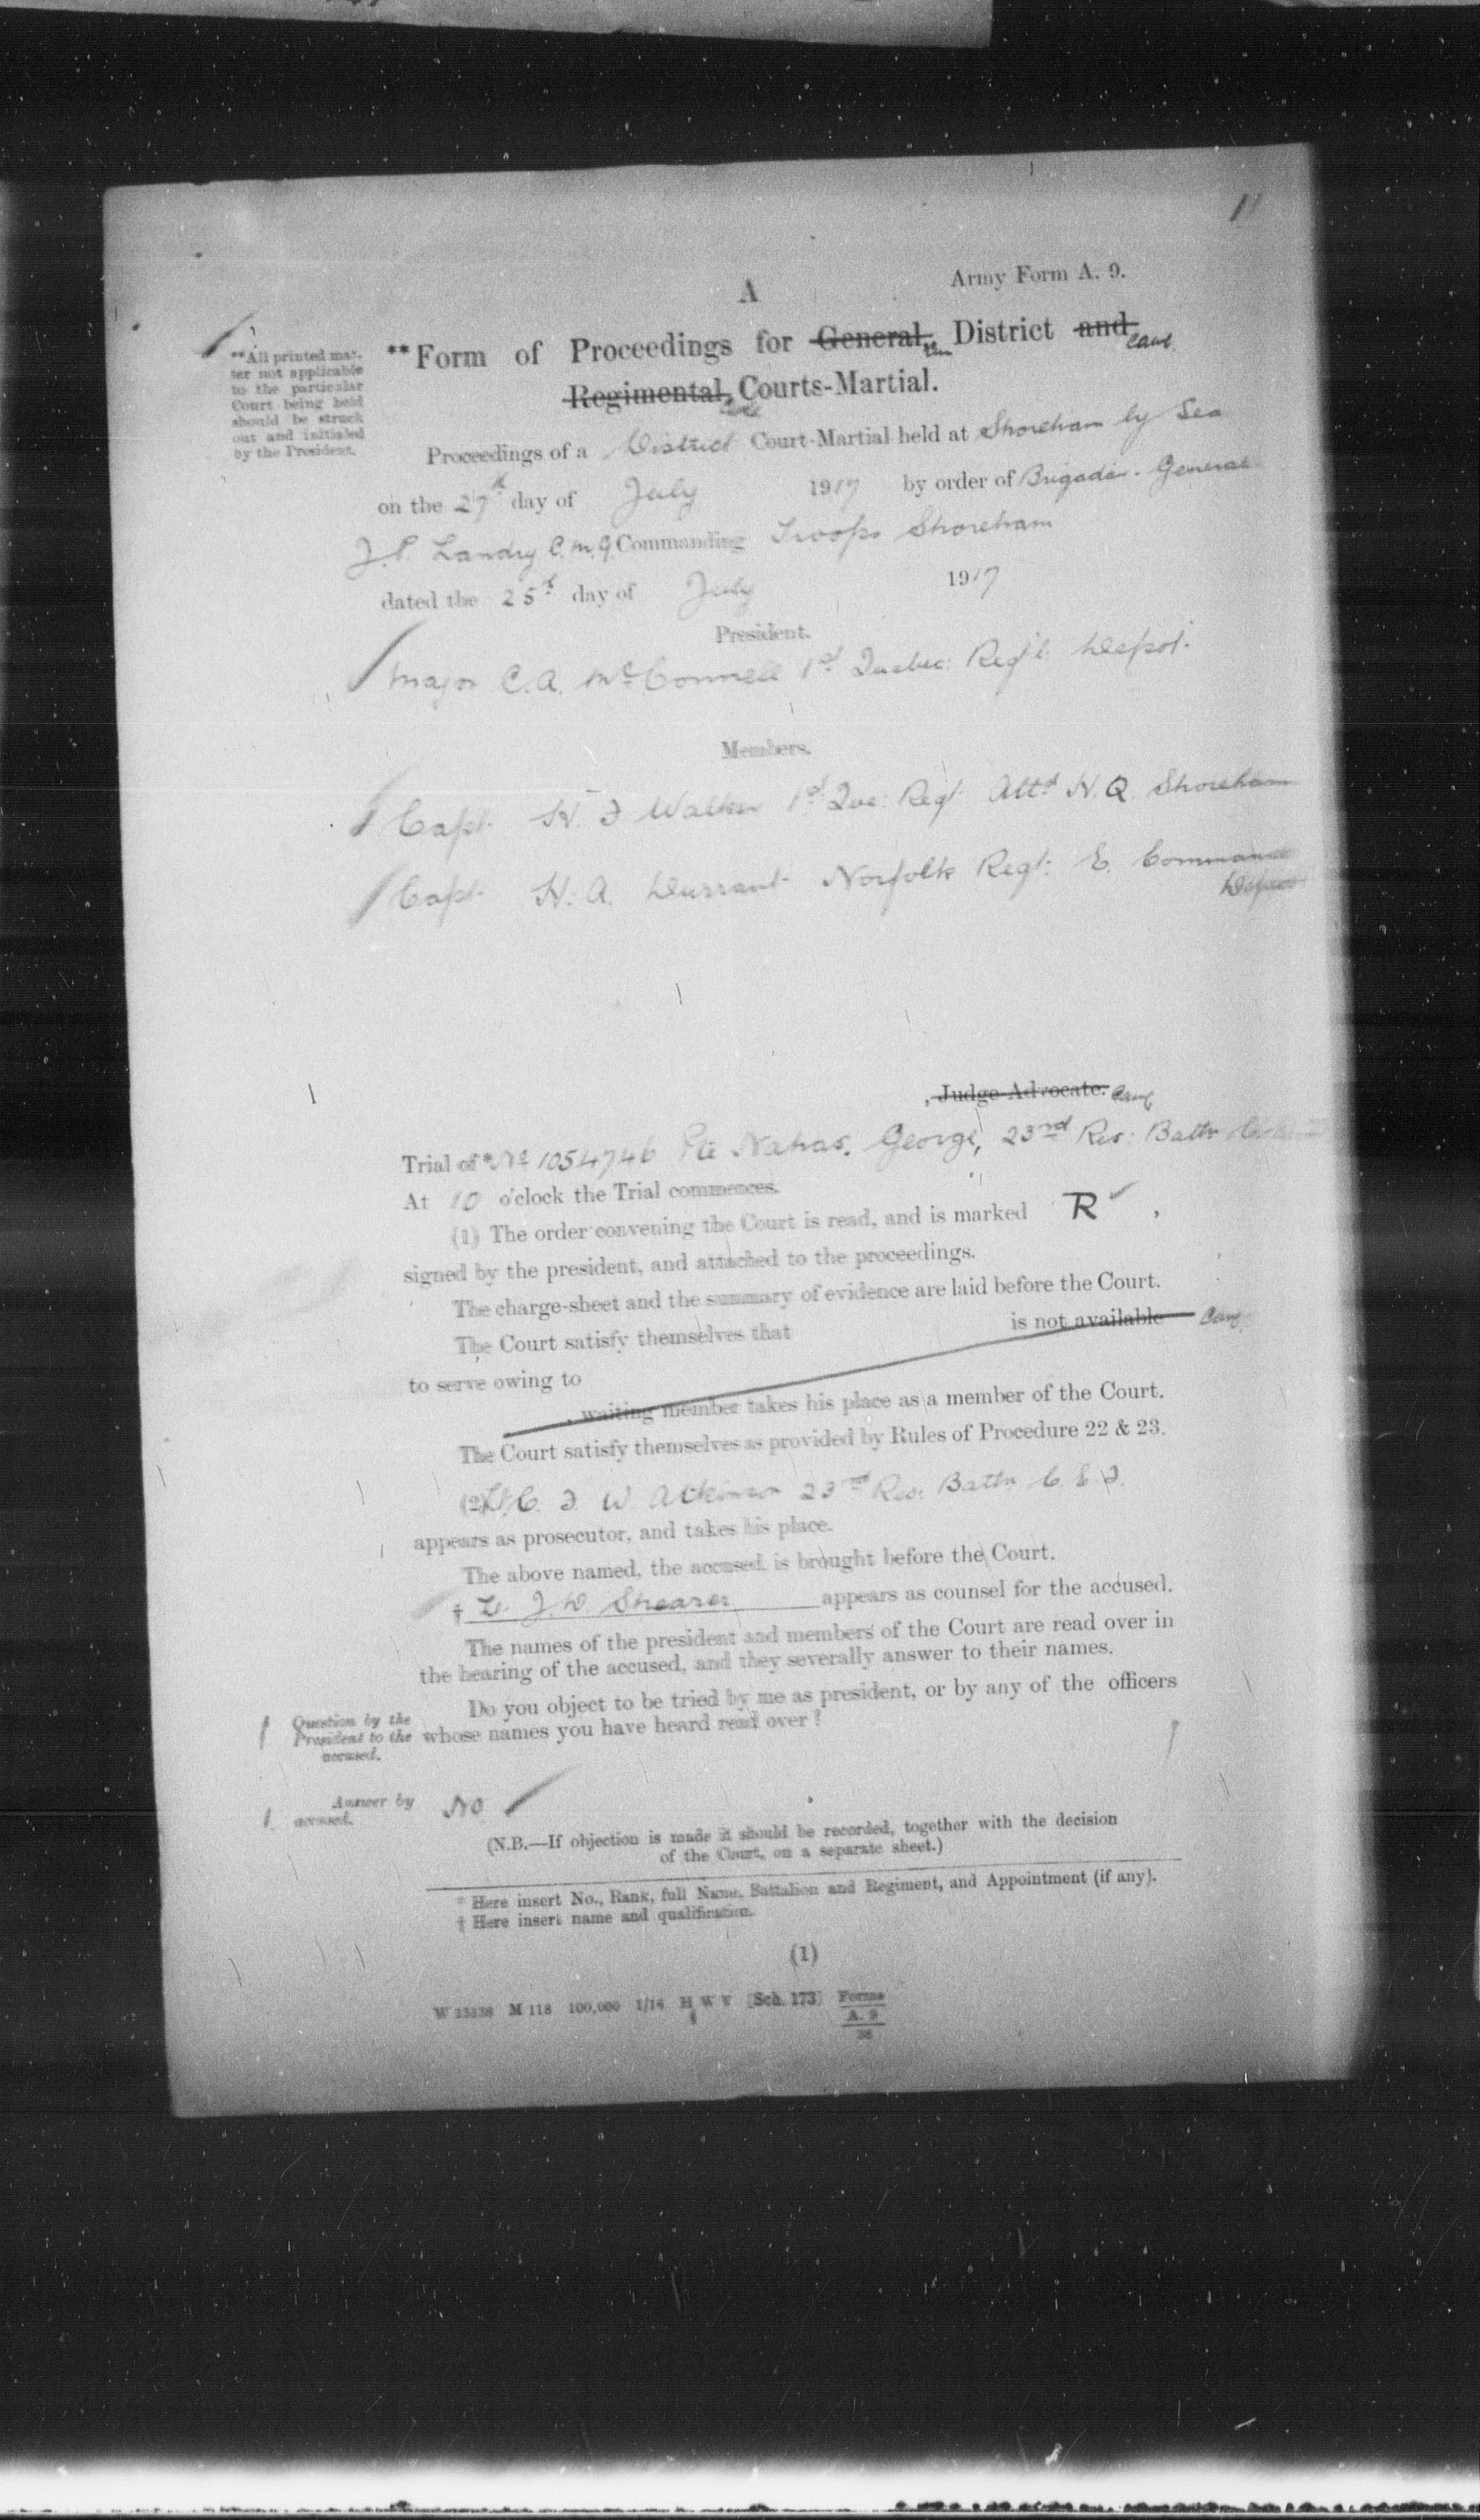 11
Army Form A. 9.
A
**All printed mat-
ter not applicable
to the particular
Court being held
should be struck
out and initialed
by the President.
**Form of Proceedings for General, District and
Regimental, Courts-Martial.
Proceedings of a District Court-Martial held at Shoreham by Sea
on the 27th day of July 1917 by order of Brigadier-General
J.P. Landry C.M.G. Commanding Troops Shoreham
dated the 25th day of July 1917
President.
Major C.A. McConnell 1st Quebec Reg'l Depot.
Members.
Capt. H. J Walker 1st Que: Regt. Attd H.Q. Shoreham
Capt. H. A. Durrant Norfolk Regt. E. Command
Depot
Judge-Advocate. CAMC
Trial of *No 1054746 Pte Nahas, George, 23rd Res: Battn
At 10 o'clock the Trial commences.
(1) The order convening the Court is read, and is marked R ,
signed by the president, and attached to the proceedings.
The charge-sheet and the summary of evidence are laid before the Court.
The Court satisfy themselves that is not available
to serve owing to
, waiting member takes his place as a member of the Court.
The Court satisfy themselves as provided by Rules of Procedure 22 & 23.
(2) Lt. C. J. W. Atkinson 23rd Res: Battn C.E.F.
appears as prosecutor, and takes his place.
The above named, the accused, is brought before the Court.
† Lt. J.D. Shearer appears as counsel for the accused.
The names of the president and members of the Court are read over in
the hearing of the accused, and they severally answer to their names.
Question by the
President to the
accused.
Do you object to be tried by me as president, or by any of the officers
whose names you have heard read over?
Answer by
accused.
No
(N.B.—If objection is made it should be recorded, together with the decision
of the Court, on a separate sheet.)
* Here insert No., Rank, full Name, Battalion and Regiment, and Appointment (if any).
† Here insert name and qualification.
(1)
M 118 100,000 1/16 H W V [Sch. 173] Forms
A. 9